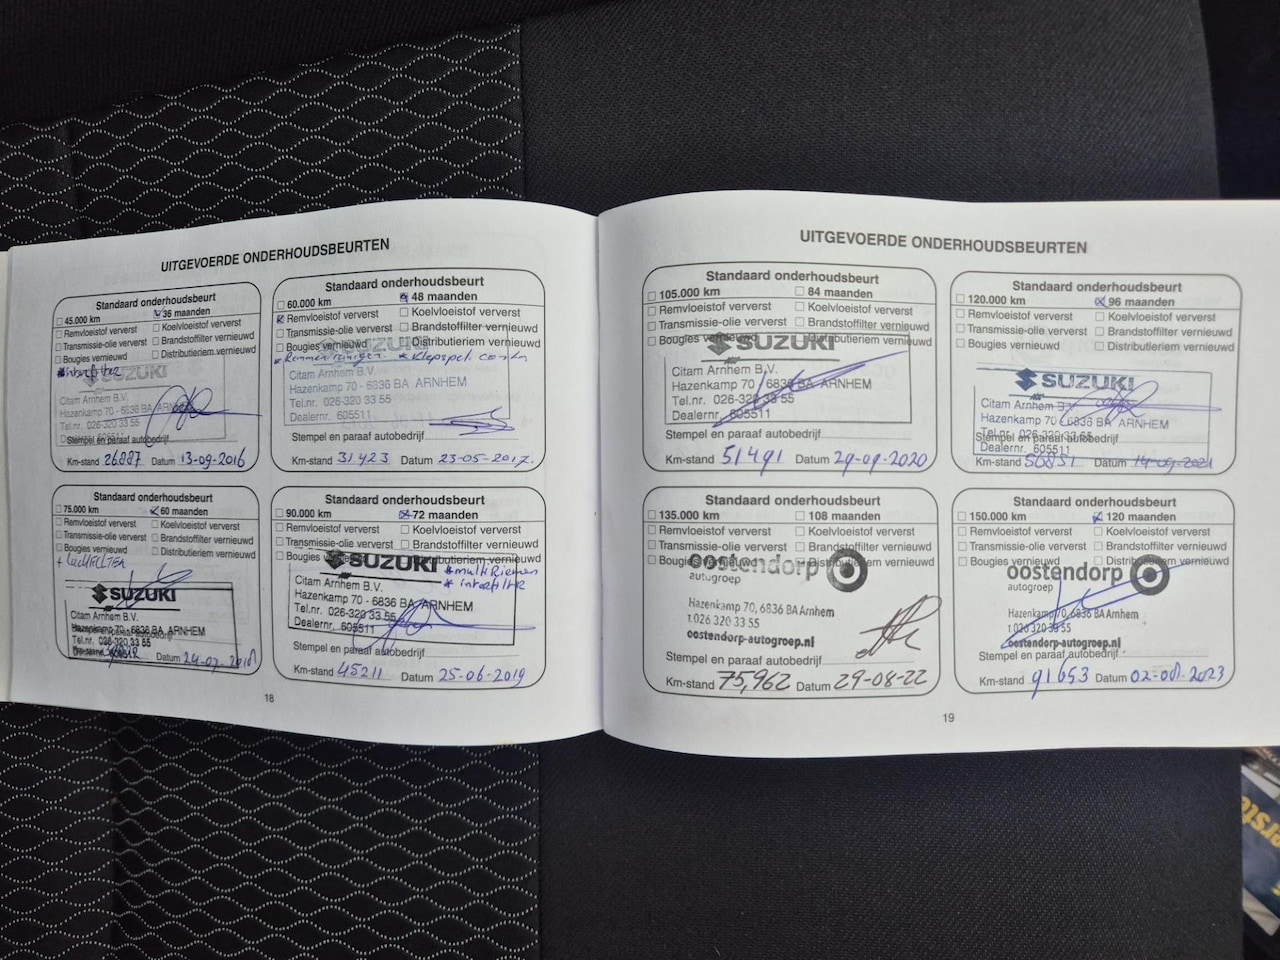 UITGEVOERDE ONDERHOUDSBEURTEN
Standaard onderhoudsbeurt
45.000 km 36 maanden
Remvloeistof ververst Koelvloeistof ververst
Transmissie-olie ververst Brandstoffilter vernieuwd
Bougies vernieuwd Distributieriem vernieuwd
interfilter
SUZUKI
Citam Arnhem B.V.
Hazenkamp 70 - 6836 BA ARNHEM
Tel.nr. 026-320 33 55
Dealernr. 605511
Stempel en paraaf autobedrijf
Km-stand 26887 Datum 13-09-2016
Standaard onderhoudsbeurt
60.000 km 48 maanden
Remvloeistof ververst Koelvloeistof ververst
Transmissie-olie ververst Brandstoffilter vernieuwd
Bougies vernieuwd Distributieriem vernieuwd
* Remmen reinigen * Klepspel
SUZUKI
Citam Arnhem B.V.
Hazenkamp 70 - 6836 BA ARNHEM
Tel.nr. 026-320 33 55
Dealernr. 605511
Stempel en paraaf autobedrijf
Km-stand 31.423 Datum 23-05-2017
Standaard onderhoudsbeurt
75.000 km 60 maanden
Remvloeistof ververst Koelvloeistof ververst
Transmissie-olie ververst Brandstoffilter vernieuwd
Bougies vernieuwd Distributieriem vernieuwd
+ luchtfilter
SUZUKI
Citam Arnhem B.V.
Hazenkamp 70 - 6836 BA ARNHEM
Tel.nr. 026-320 33 55
Stempel en paraaf autobedrijf
Km-stand Datum
Standaard onderhoudsbeurt
90.000 km 72 maanden
Remvloeistof ververst Koelvloeistof ververst
Transmissie-olie ververst Brandstoffilter vernieuwd
Bougies vernieuwd Distributieriem vernieuwd
SUZUKI * multiRiemen
* interfilter
Citam Arnhem B.V.
Hazenkamp 70 - 6836 BA ARNHEM
Tel.nr. 026-320 33 55
Dealernr. 605511
Stempel en paraaf autobedrijf
Km-stand 45211 Datum 25-06-2019
18
UITGEVOERDE ONDERHOUDSBEURTEN
Standaard onderhoudsbeurt
105.000 km 84 maanden
Remvloeistof ververst Koelvloeistof ververst
Transmissie-olie ververst Brandstoffilter vernieuwd
Bougies vernieuwd Distributieriem vernieuwd
SUZUKI
Citam Arnhem B.V.
Hazenkamp 70 - 6836 BA ARNHEM
Tel.nr. 026-320 33 55
Dealernr. 605511
Stempel en paraaf autobedrijf
Km-stand 51491 Datum 29-09-2020
Standaard onderhoudsbeurt
120.000 km 96 maanden
Remvloeistof ververst Koelvloeistof ververst
Transmissie-olie ververst Brandstoffilter vernieuwd
Bougies vernieuwd Distributieriem vernieuwd
SUZUKI
Citam Arnhem B.V.
Hazenkamp 70 - 6836 BA ARNHEM
Tel.nr. 026-320 33 55
Stempel en paraaf autobedrijf
Dealernr. 605511
Km-stand Datum 14-09-2021
Standaard onderhoudsbeurt
135.000 km 108 maanden
Remvloeistof ververst Koelvloeistof ververst
Transmissie-olie ververst Brandstoffilter vernieuwd
Bougies vernieuwd Distributieriem vernieuwd
oostendorp
autogroep
Hazenkamp 70, 6836 BA Arnhem
t.026 320 33 55
oostendorp-autogroep.nl
Stempel en paraaf autobedrijf
Km-stand 75,962 Datum 29-08-22
Standaard onderhoudsbeurt
150.000 km 120 maanden
Remvloeistof ververst Koelvloeistof ververst
Transmissie-olie ververst Brandstoffilter vernieuwd
Bougies vernieuwd Distributieriem vernieuwd
oostendorp
autogroep
Hazenkamp 70, 6836 BA Arnhem
t.026 320 33 55
oostendorp-autogroep.nl
Stempel en paraaf autobedrijf
Km-stand 91653 Datum
19